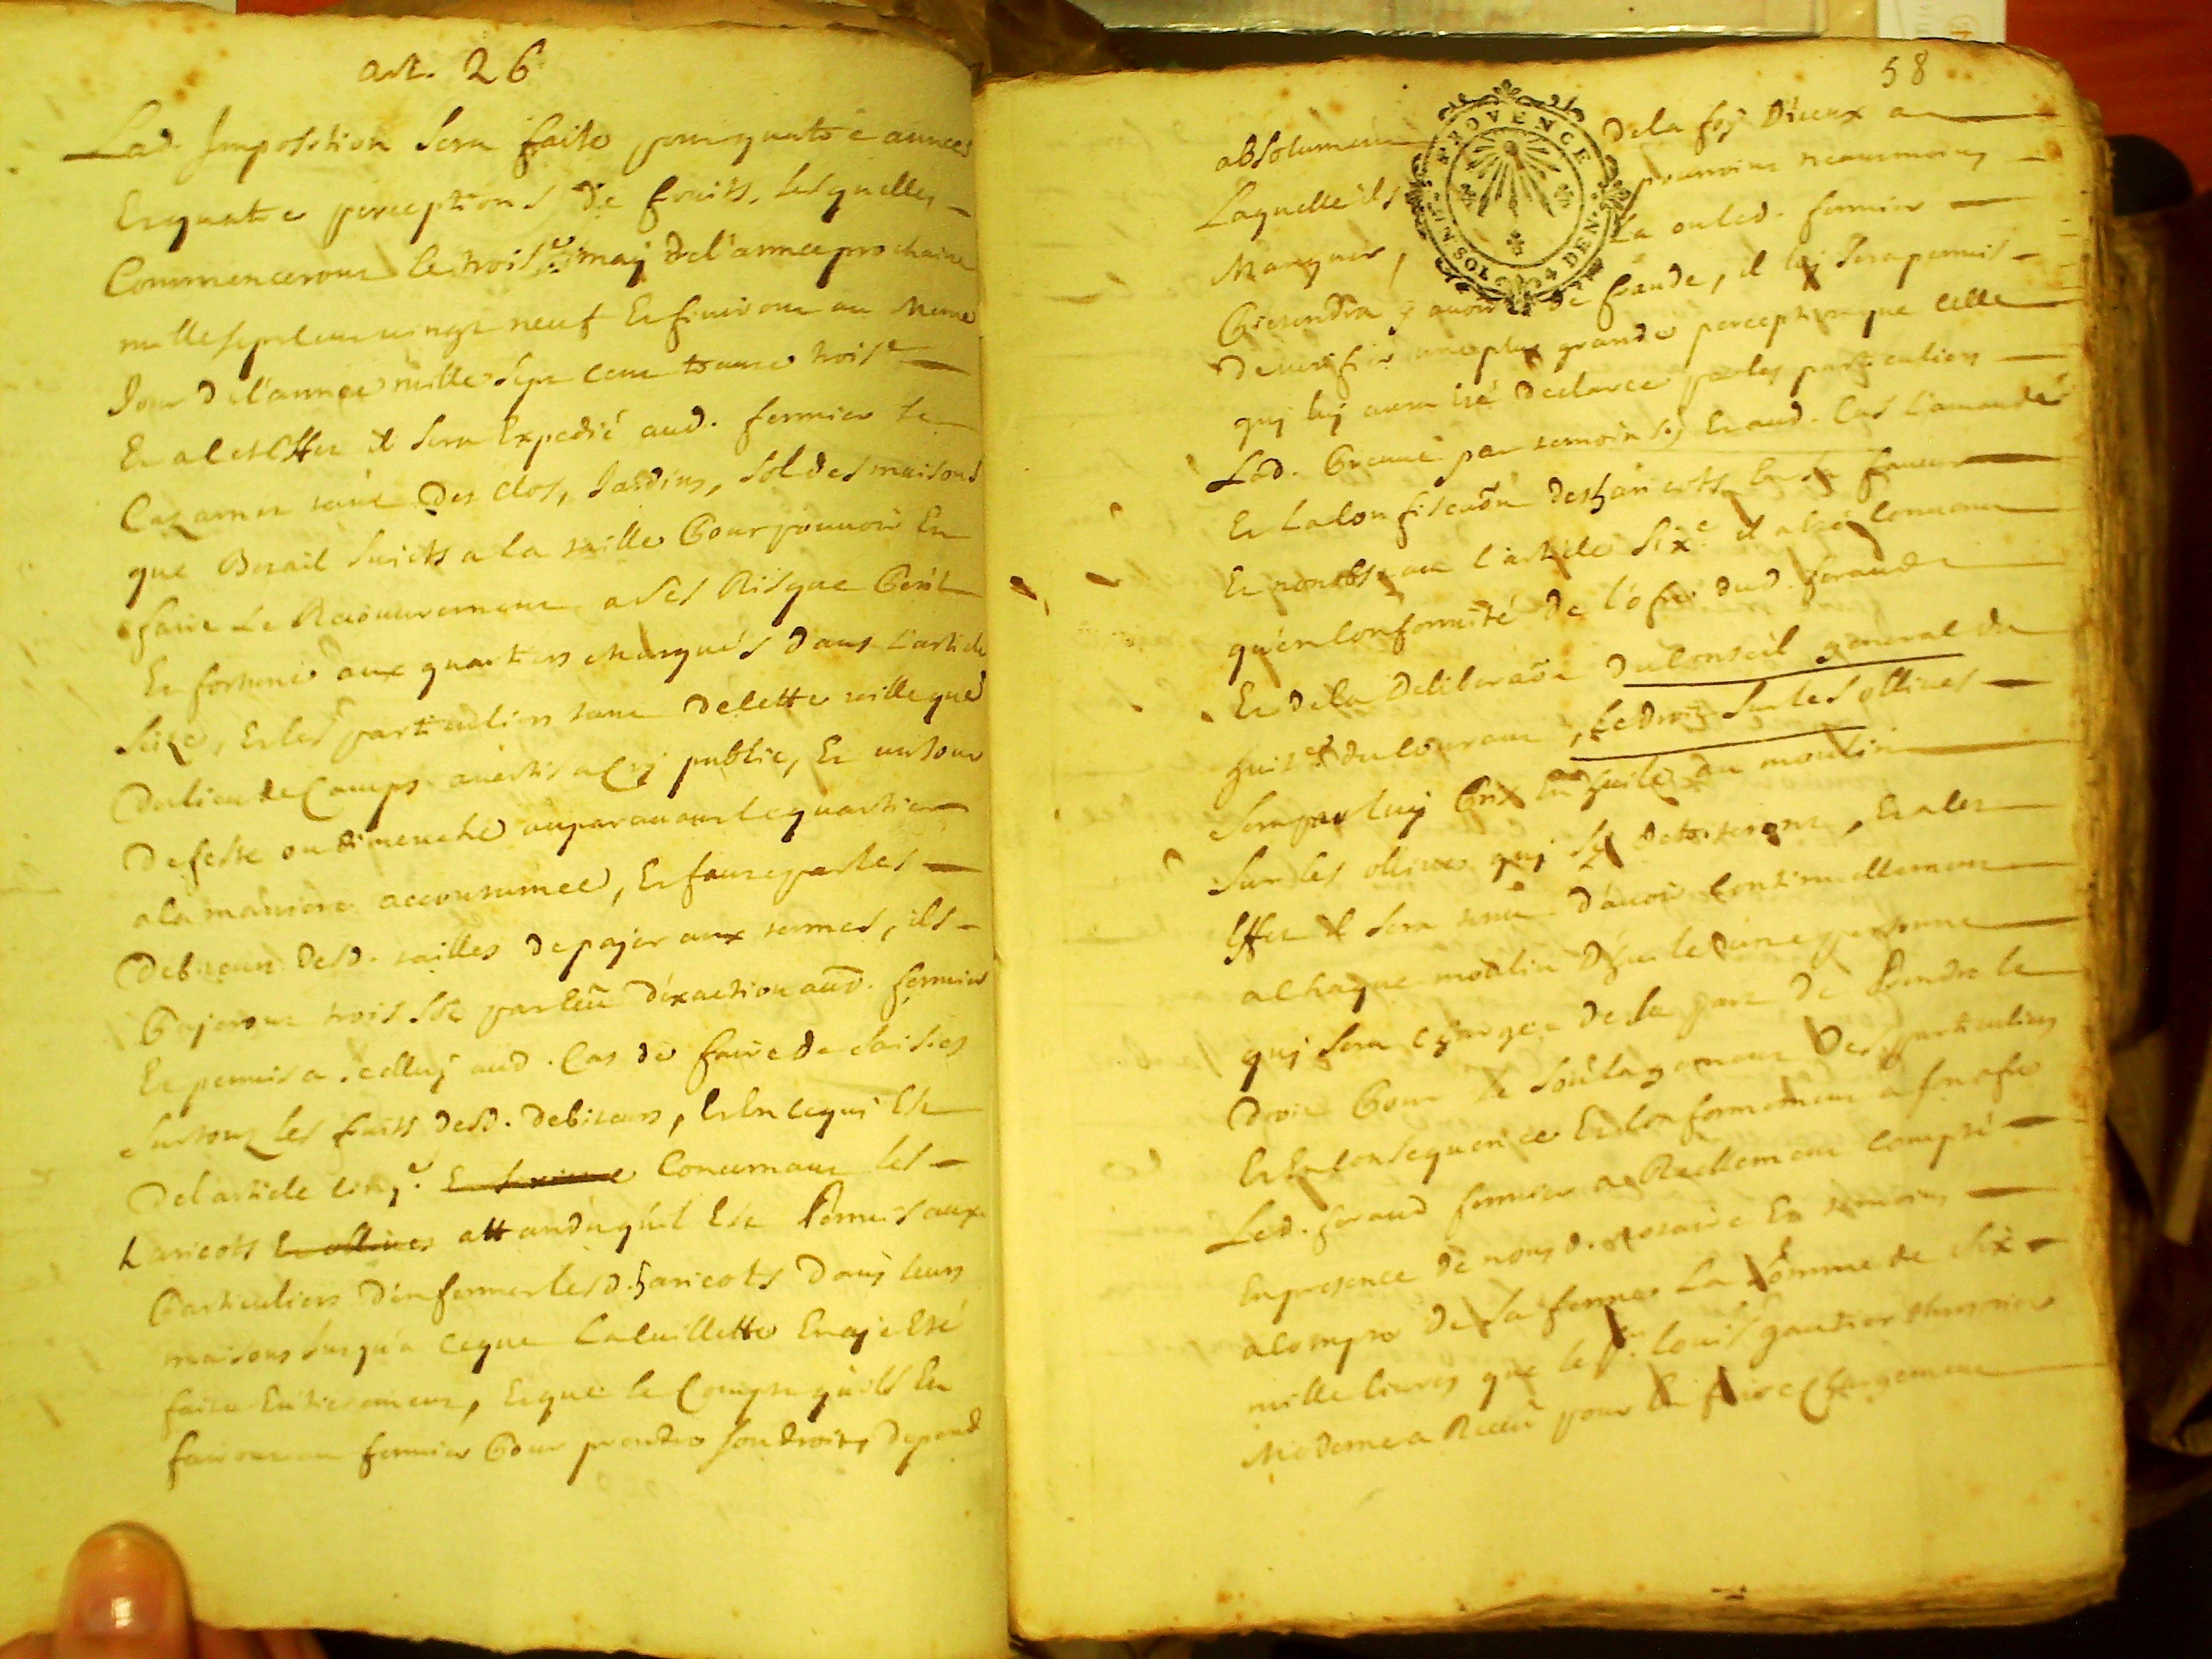 art. 26
Lad. Imposition sera faite pour quatre années
Et quatre perceptions de fruits, lesquelles
Commenceront le trois.e may de l'année prochaine
mille sept cent vingt neuf Et finiront au meme
Jour de l'année mille sept cent trante trois.e
Et a cet effet il sera Expedié aud. fermier le
Cazarnet tant des clos, Jardins, sol des maisons
que Bezail suiets a la taille Pour pouvoir En
faire le Recouvrement a ses Risque Peril
Et fortune aux quartiers marqués dans l'article
seize, Et les particuliers tant de cette ville que
du lieu de Camps avertis a Cry public, Et un jour
de feste ou dimenche auparavant le quartier
a la maniere accoutumée, Et faute par les
debiteurs desd. tailles de payer aux termes, ils
Payeront trois sols par leû d'exaction aud. fermier
Et permis a Icelluy aud. Cas de faire de saisies
sur tous les fruits desd. debiteurs, Et En ce qui Est
de l'article cinq.e Et sixieme Concernant les
haricots Et ollives attandu qu'il Est Permis aux
Particuliers d'enfermer lesd. haricots dans leurs
maisons jusqu'a ce que la cuillette En aje Eté
faite Entierement, Et que le Compte qu'ils En
fairont au fermier Pour prendre son droit, depend
58
PROVENCE
UN SOL 4 DEN.
absolument de la foy d'iceux a
Laquelle ils pourroint neanmoins
Manquer, La ou led. fermier
Pretendra y avoir de fraude, il luy sera permis
de verifier une plus grande perception que celle
quy luy aura eté declarée par les particuliers
Lad. Preuve par temoins, Et aud. Cas l'amande
Et la confiscaôn des haricots En sa faveur
Et nonobstant l'article six.e il a eté Convenu
qu'en Conformité de l'ofre dud. feraud
Et de la Deliberaôn du Conseil general du
huit.e du Courant, Le droit sur les ollives
sera par luy Pris En huile au moulin
sur les ollives quy se detriteront, Et a cet
Effet il sera tenu d'avoir Continuellement
a chaque moulin d'huile d'une personne
quy sera chargée de sa part de Prendre le
droit Pour le soulagement des particuliers
Et En Consequence Et Conformement a son ofre
Led. feraud fermier a Reellement Compté
En presence de nous d. notaire Et temoins
a Compte de sa ferme La somme de six
mille livres que le s.r louis gautier thresorier
Moderne a Receu pour En faire Chargement